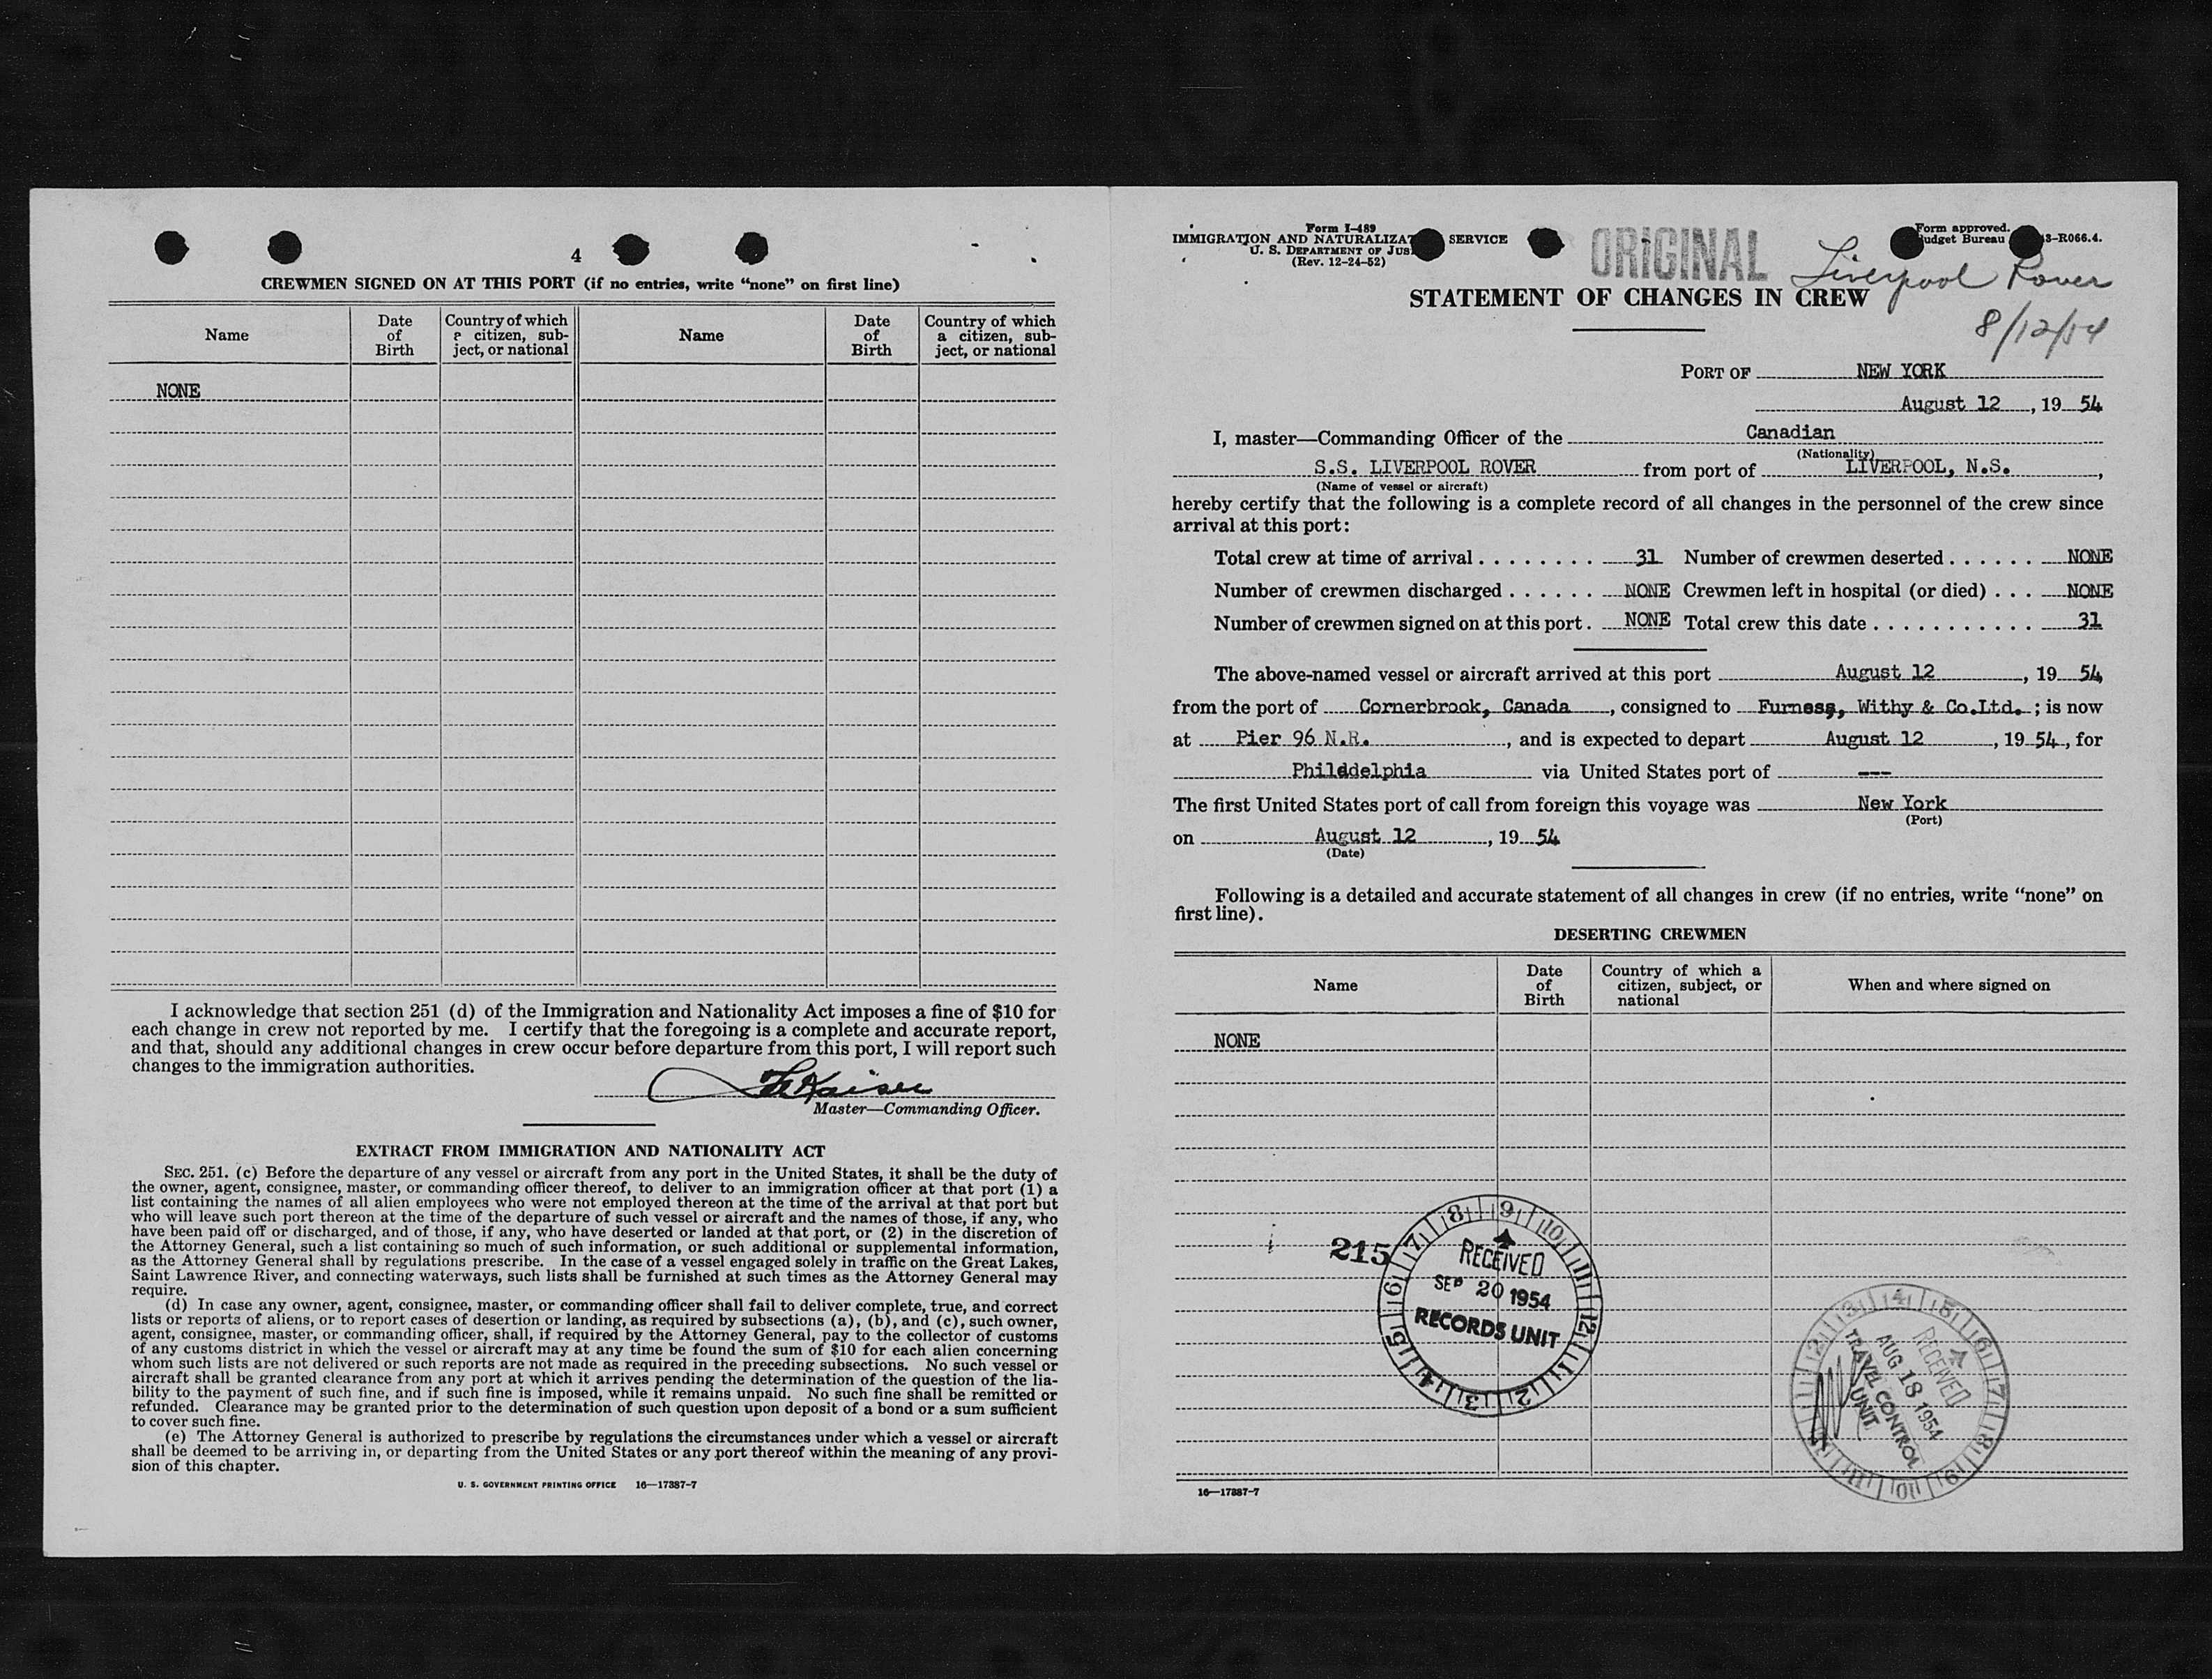 4
CREWMEN SIGNED ON AT THIS PORT (if no entries, write “none” on first line)
Name
Date of Birth
Country of which a citizen, subject, or national
Name
Date of Birth
Country of which a citizen, subject, or national
NONE
I acknowledge that section 251 (d) of the Immigration and Nationality Act imposes a fine of $10 for
each change in crew not reported by me. I certify that the foregoing is a complete and accurate report,
and that, should any additional changes in crew occur before departure from this port, I will report such
changes to the immigration authorities.
Kaiser
Master—Commanding Officer.
EXTRACT FROM IMMIGRATION AND NATIONALITY ACT
SEC. 251. (c) Before the departure of any vessel or aircraft from any port in the United States, it shall be the duty of
the owner, agent, consignee, master, or commanding officer thereof, to deliver to an immigration officer at that port (1) a
list containing the names of all alien employees who were not employed thereon at the time of the arrival at that port but
who will leave such port thereon at the time of the departure of such vessel or aircraft and the names of those, if any, who
have been paid off or discharged, and of those, if any, who have deserted or landed at that port, or (2) in the discretion of
the Attorney General, such a list containing so much of such information, or such additional or supplemental information,
as the Attorney General shall by regulations prescribe. In the case of a vessel engaged solely in traffic on the Great Lakes,
Saint Lawrence River, and connecting waterways, such lists shall be furnished at such times as the Attorney General may
require.
(d) In case any owner, agent, consignee, master, or commanding officer shall fail to deliver complete, true, and correct
lists or reports of aliens, or to report cases of desertion or landing, as required by subsections (a), (b), and (c), such owner,
agent, consignee, master, or commanding officer, shall, if required by the Attorney General, pay to the collector of customs
of any customs district in which the vessel or aircraft may at any time be found the sum of $10 for each alien concerning
whom such lists are not delivered or such reports are not made as required in the preceding subsections. No such vessel or
aircraft shall be granted clearance from any port at which it arrives pending the determination of the question of the lia-
bility to the payment of such fine, and if such fine is imposed, while it remains unpaid. No such fine shall be remitted or
refunded. Clearance may be granted prior to the determination of such question upon deposit of a bond or a sum sufficient
to cover such fine.
(e) The Attorney General is authorized to prescribe by regulations the circumstances under which a vessel or aircraft
shall be deemed to be arriving in, or departing from the United States or any port thereof within the meaning of any provi-
sion of this chapter.
U. S. GOVERNMENT PRINTING OFFICE 16—17387-7
Form I-489
IMMIGRATION AND NATURALIZAT SERVICE
U. S. DEPARTMENT OF JUS
(Rev. 12-24-52)
ORIGINAL
Form approved.
udget Bureau 3-R066.4.
Liverpool Rover
8/12/54
STATEMENT OF CHANGES IN CREW
PORT OF NEW YORK
August 12, 19 54
I, master—Commanding Officer of the Canadian
(Nationality)
S.S. LIVERPOOL ROVER from port of LIVERPOOL, N.S.,
(Name of vessel or aircraft)
hereby certify that the following is a complete record of all changes in the personnel of the crew since
arrival at this port:
Total crew at time of arrival . . . . . . . . 31 Number of crewmen deserted . . . . . . NONE
Number of crewmen discharged . . . . . . NONE Crewmen left in hospital (or died) . . . NONE
Number of crewmen signed on at this port . NONE Total crew this date . . . . . . . . . . . 31
The above-named vessel or aircraft arrived at this port August 12, 19 54
from the port of Cornerbrook, Canada, consigned to Furness, Withy & Co.Ltd. ; is now
at Pier 96 N.R., and is expected to depart August 12, 19 54, for
Philddelphia via United States port of ---
The first United States port of call from foreign this voyage was New York
(Port)
on August 12, 19 54
(Date)
Following is a detailed and accurate statement of all changes in crew (if no entries, write “none” on
first line).
DESERTING CREWMEN
Name
Date of Birth
Country of which a citizen, subject, or national
When and where signed on
NONE
215
RECEIVED
SEP 20 1954
RECORDS UNIT
RECEIVED
AUG 18 1954
TRAVEL CONTROL
UNIT
16—17387-7